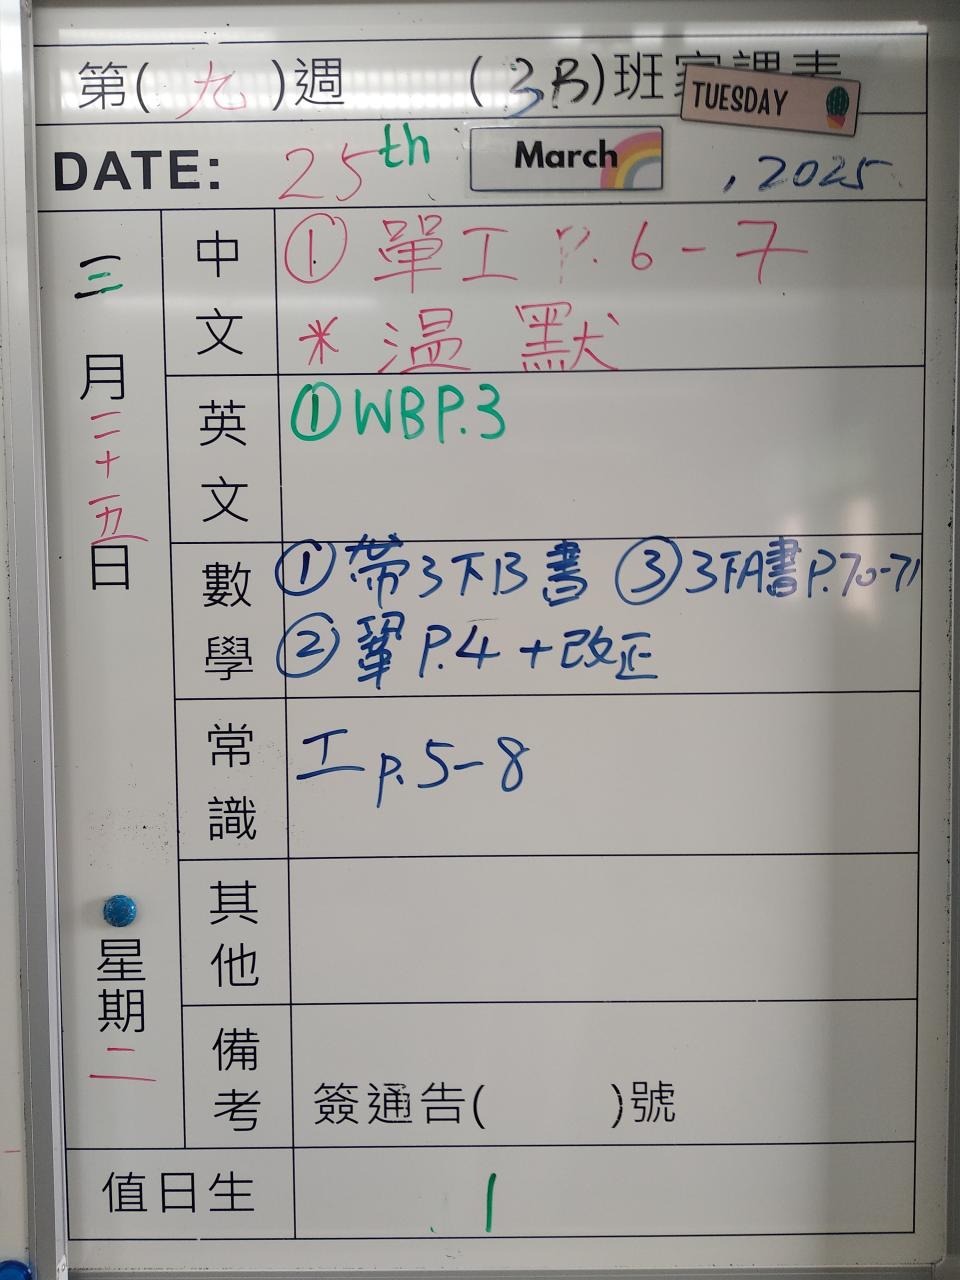 第(九)週 (3B)班家課表
TUESDAY
DATE: 25th March , 2025
三月二十五日
星期二
中文
① 單工 P.6-7
* 溫 默
英文
① WB P.3
數學
① 帶3下B書 ③ 3下A書P.70-71
② 鞏 P.4 + 改正
常識
工 p.5-8
其他
備考
簽通告( )號
值日生
1